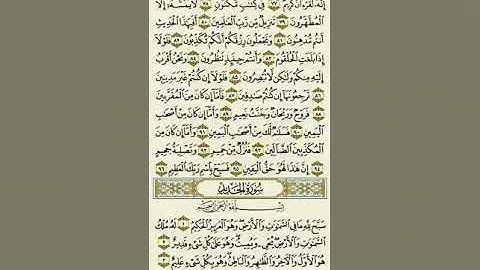 إِنَّهُۥ لَقُرۡءَانٞ كَرِيمٞ ٧٧ فِي كِتَٰبٖ مَّكۡنُونٖ ٧٨ لَّا يَمَسُّهُۥٓ إِلَّا
ٱلۡمُطَهَّرُونَ ٧٩ تَنزِيلٞ مِّن رَّبِّ ٱلۡعَٰلَمِينَ ٨٠ أَفَبِهَٰذَا ٱلۡحَدِيثِ
أَنتُم مُّدۡهِنُونَ ٨١ وَتَجۡعَلُونَ رِزۡقَكُمۡ أَنَّكُمۡ تُكَذِّبُونَ ٨٢ فَلَوۡلَآ
إِذَا بَلَغَتِ ٱلۡحُلۡقُومَ ٨٣ وَأَنتُمۡ حِينَئِذٖ تَنظُرُونَ ٨٤ وَنَحۡنُ أَقۡرَبُ
إِلَيۡهِ مِنكُمۡ وَلَٰكِن لَّا تُبۡصِرُونَ ٨٥ فَلَوۡلَآ إِن كُنتُمۡ غَيۡرَ مَدِينِينَ
٨٦ تَرۡجِعُونَهَآ إِن كُنتُمۡ صَٰدِقِينَ ٨٧ فَأَمَّآ إِن كَانَ مِنَ ٱلۡمُقَرَّبِينَ
٨٨ فَرَوۡحٞ وَرَيۡحَانٞ وَجَنَّتُ نَعِيمٖ ٨٩ وَأَمَّآ إِن كَانَ مِنۡ أَصۡحَٰبِ
ٱلۡيَمِينِ ٩٠ فَسَلَٰمٞ لَّكَ مِنۡ أَصۡحَٰبِ ٱلۡيَمِينِ ٩١ وَأَمَّآ إِن كَانَ مِنَ
ٱلۡمُكَذِّبِينَ ٱلضَّآلِّينَ ٩٢ فَنُزُلٞ مِّنۡ حَمِيمٖ ٩٣ وَتَصۡلِيَةُ جَحِيمٍ
٩٤ إِنَّ هَٰذَا لَهُوَ حَقُّ ٱلۡيَقِينِ ٩٥ فَسَبِّحۡ بِٱسۡمِ رَبِّكَ ٱلۡعَظِيمِ ٩٦
سُورَةُ الحَدِيدِ
بِسۡمِ ٱللَّهِ ٱلرَّحۡمَٰنِ ٱلرَّحِيمِ
سَبَّحَ لِلَّهِ مَا فِي ٱلسَّمَٰوَٰتِ وَٱلۡأَرۡضِۖ وَهُوَ ٱلۡعَزِيزُ ٱلۡحَكِيمُ ١ لَهُۥ مُلۡكُ
ٱلسَّمَٰوَٰتِ وَٱلۡأَرۡضِۖ يُحۡيِۦ وَيُمِيتُۖ وَهُوَ عَلَىٰ كُلِّ شَيۡءٖ قَدِيرٌ ٢
هُوَ ٱلۡأَوَّلُ وَٱلۡأٓخِرُ وَٱلظَّٰهِرُ وَٱلۡبَاطِنُۖ وَهُوَ بِكُلِّ شَيۡءٍ عَلِيمٌ ٣